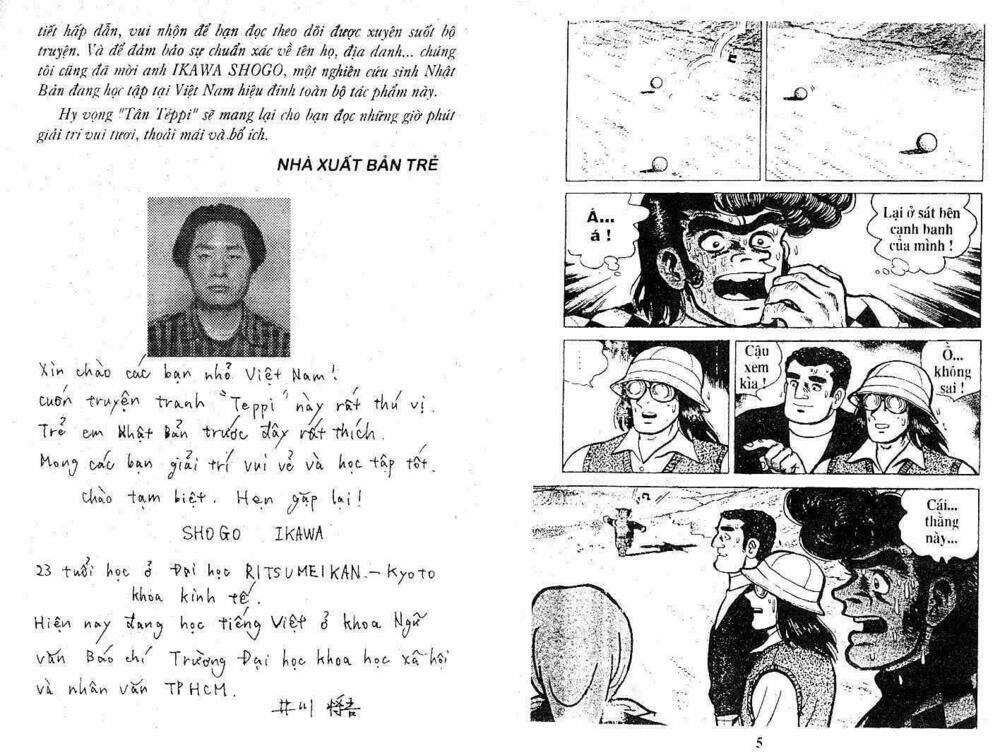 tiết hấp dẫn, vui nhộn để bạn đọc theo dõi được xuyên suốt bộ
truyện. Và để đảm bảo sự chuẩn xác về tên họ, địa danh... chúng
tôi cũng đã mời anh IKAWA SHOGO, một nghiên cứu sinh Nhật
Bản đang học tập tại Việt Nam hiệu đính toàn bộ tác phẩm này.
Hy vọng "Tân Téppi" sẽ mang lại cho bạn đọc những giờ phút
giải trí vui tươi, thoải mái và bổ ích.
NHÀ XUẤT BẢN TRẺ
Xin chào các bạn nhỏ Việt Nam!
cuốn truyện tranh "Teppi" này rất thú vị.
Trẻ em Nhật Bản trước đây rất thích.
Mong các bạn giải trí vui vẻ và học tập tốt.
chào tạm biệt. Hẹn gặp lại!
SHOGO IKAWA
23 tuổi học ở Đại học RITSUMEIKAN - Kyoto
khoa kinh tế.
Hiện nay đang học tiếng Việt ở khoa Ngữ
văn Báo chí Trường Đại học khoa học xã hội
và nhân văn TPHCM.
井川 将吾
E
Á...
á !
Lại ở sát bên
cạnh banh
của mình !
...
Cậu
xem
kìa !
Ồ...
không
sai !
Cái...
thằng
này...
5